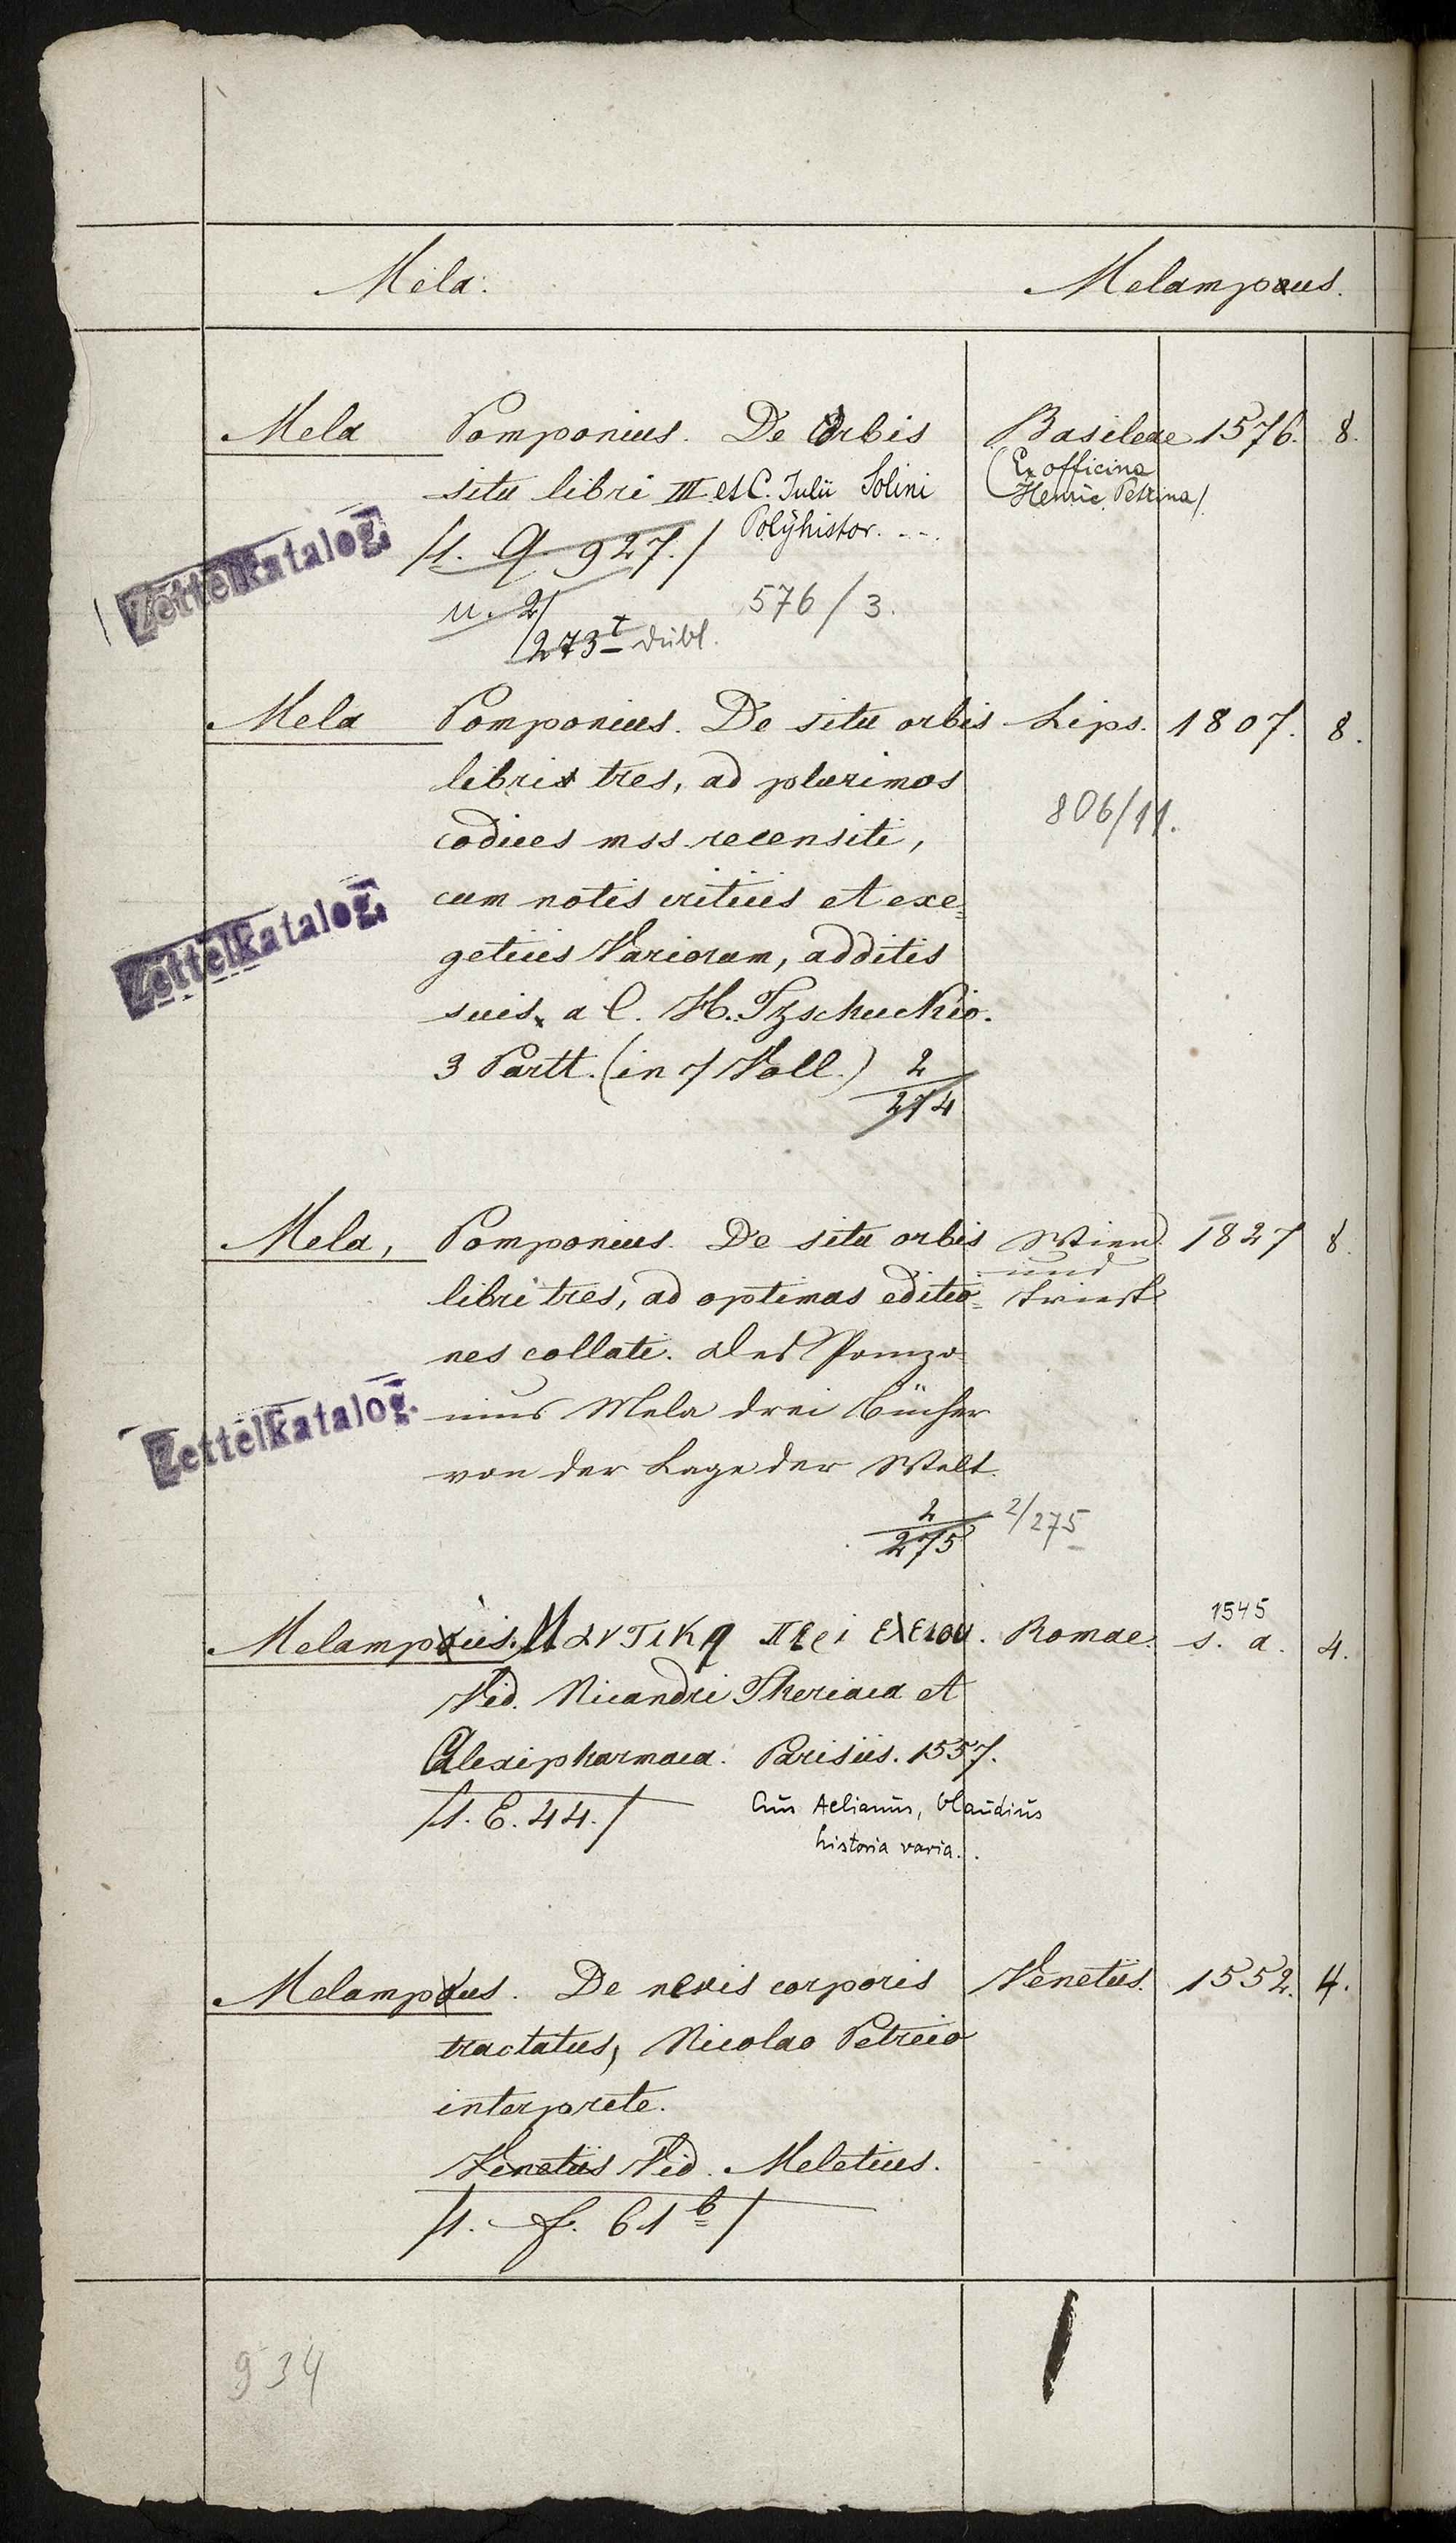 Mela. Melampus.
Mela Pomponius. De Orbis Basileae 1576. 8.
situ libri III et C. Julii Solini (Ex officina
Polÿhistor. - -. Henric. Petrina/.
/1. Q 927./
Zettelkatalog.
u. 2/ 576/3.
273 I dubl.
Mela Pomponius. De situ orbis Lips. 1807. 8.
libri tres, ad plurimos
806/11.
codices mss recensiti,
cum notis criticis et exe=
Zettelkatalog.
geticis Variorum, additis
suis, a C. H. Tzschuckio.
3 Partt. (in 7 Voll.) 2
274
Mela, Pomponius. De situ orbis Wien 1827 8.
und
libri tres, ad optimas editio= Triest
nes collati. Des Pompo=
Zettelkatalog.
nius Mela drei Bücher
von der Lage der Welt.
2/275 2/275
1545
Melampus. Μαντικη Romae. s. a. 4.
Vid. Nicandri Theriaca et
Alexipharmaca. Parisiis. 1557.
/1. E. 44./ Aelianus, Claudius
historia varia..
Melampus. De nevis corporis Venetiis. 1552. 4.
tractatus, Nicolao Petreio
interprete.
Venetiis Vid. Meletius.
/1. f. 61 b/
934